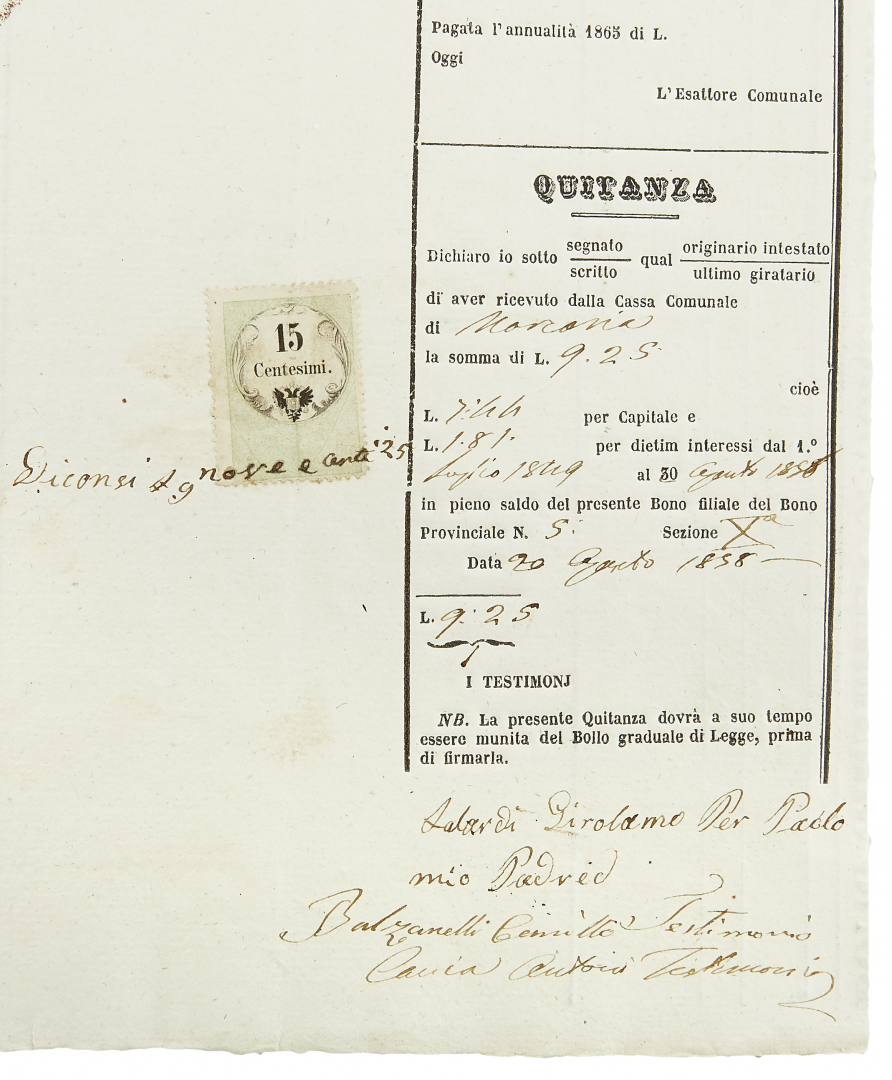 Pagata l'annualità 1865 di L.
Oggi
L'Esattore Comunale
QUITANZA
Dichiaro io sotto segnato/scritto qual originario intestato/ultimo giratario
di aver ricevuto dalla Cassa Comunale
di Marcaria
la somma di L. 9. 25
cioè
L. 7:44 per Capitale e
L. 1.81. per dietim interessi dal 1.º
Luglio 1849 al 30 Agosto 1858
in pieno saldo del presente Bono filiale del Bono
Provinciale N. 5. Sezione Xª
Data 20 Agosto 1858
L. 9. 25
I TESTIMONJ
NB. La presente Quitanza dovrà a suo tempo
essere munita del Bollo graduale di Legge, prima
di firmarla.
15
Centesimi.
Diconsi nove e 25
Girolamo Per Paolo
mio Padre
Balzanelli Testimonio
Testimonio